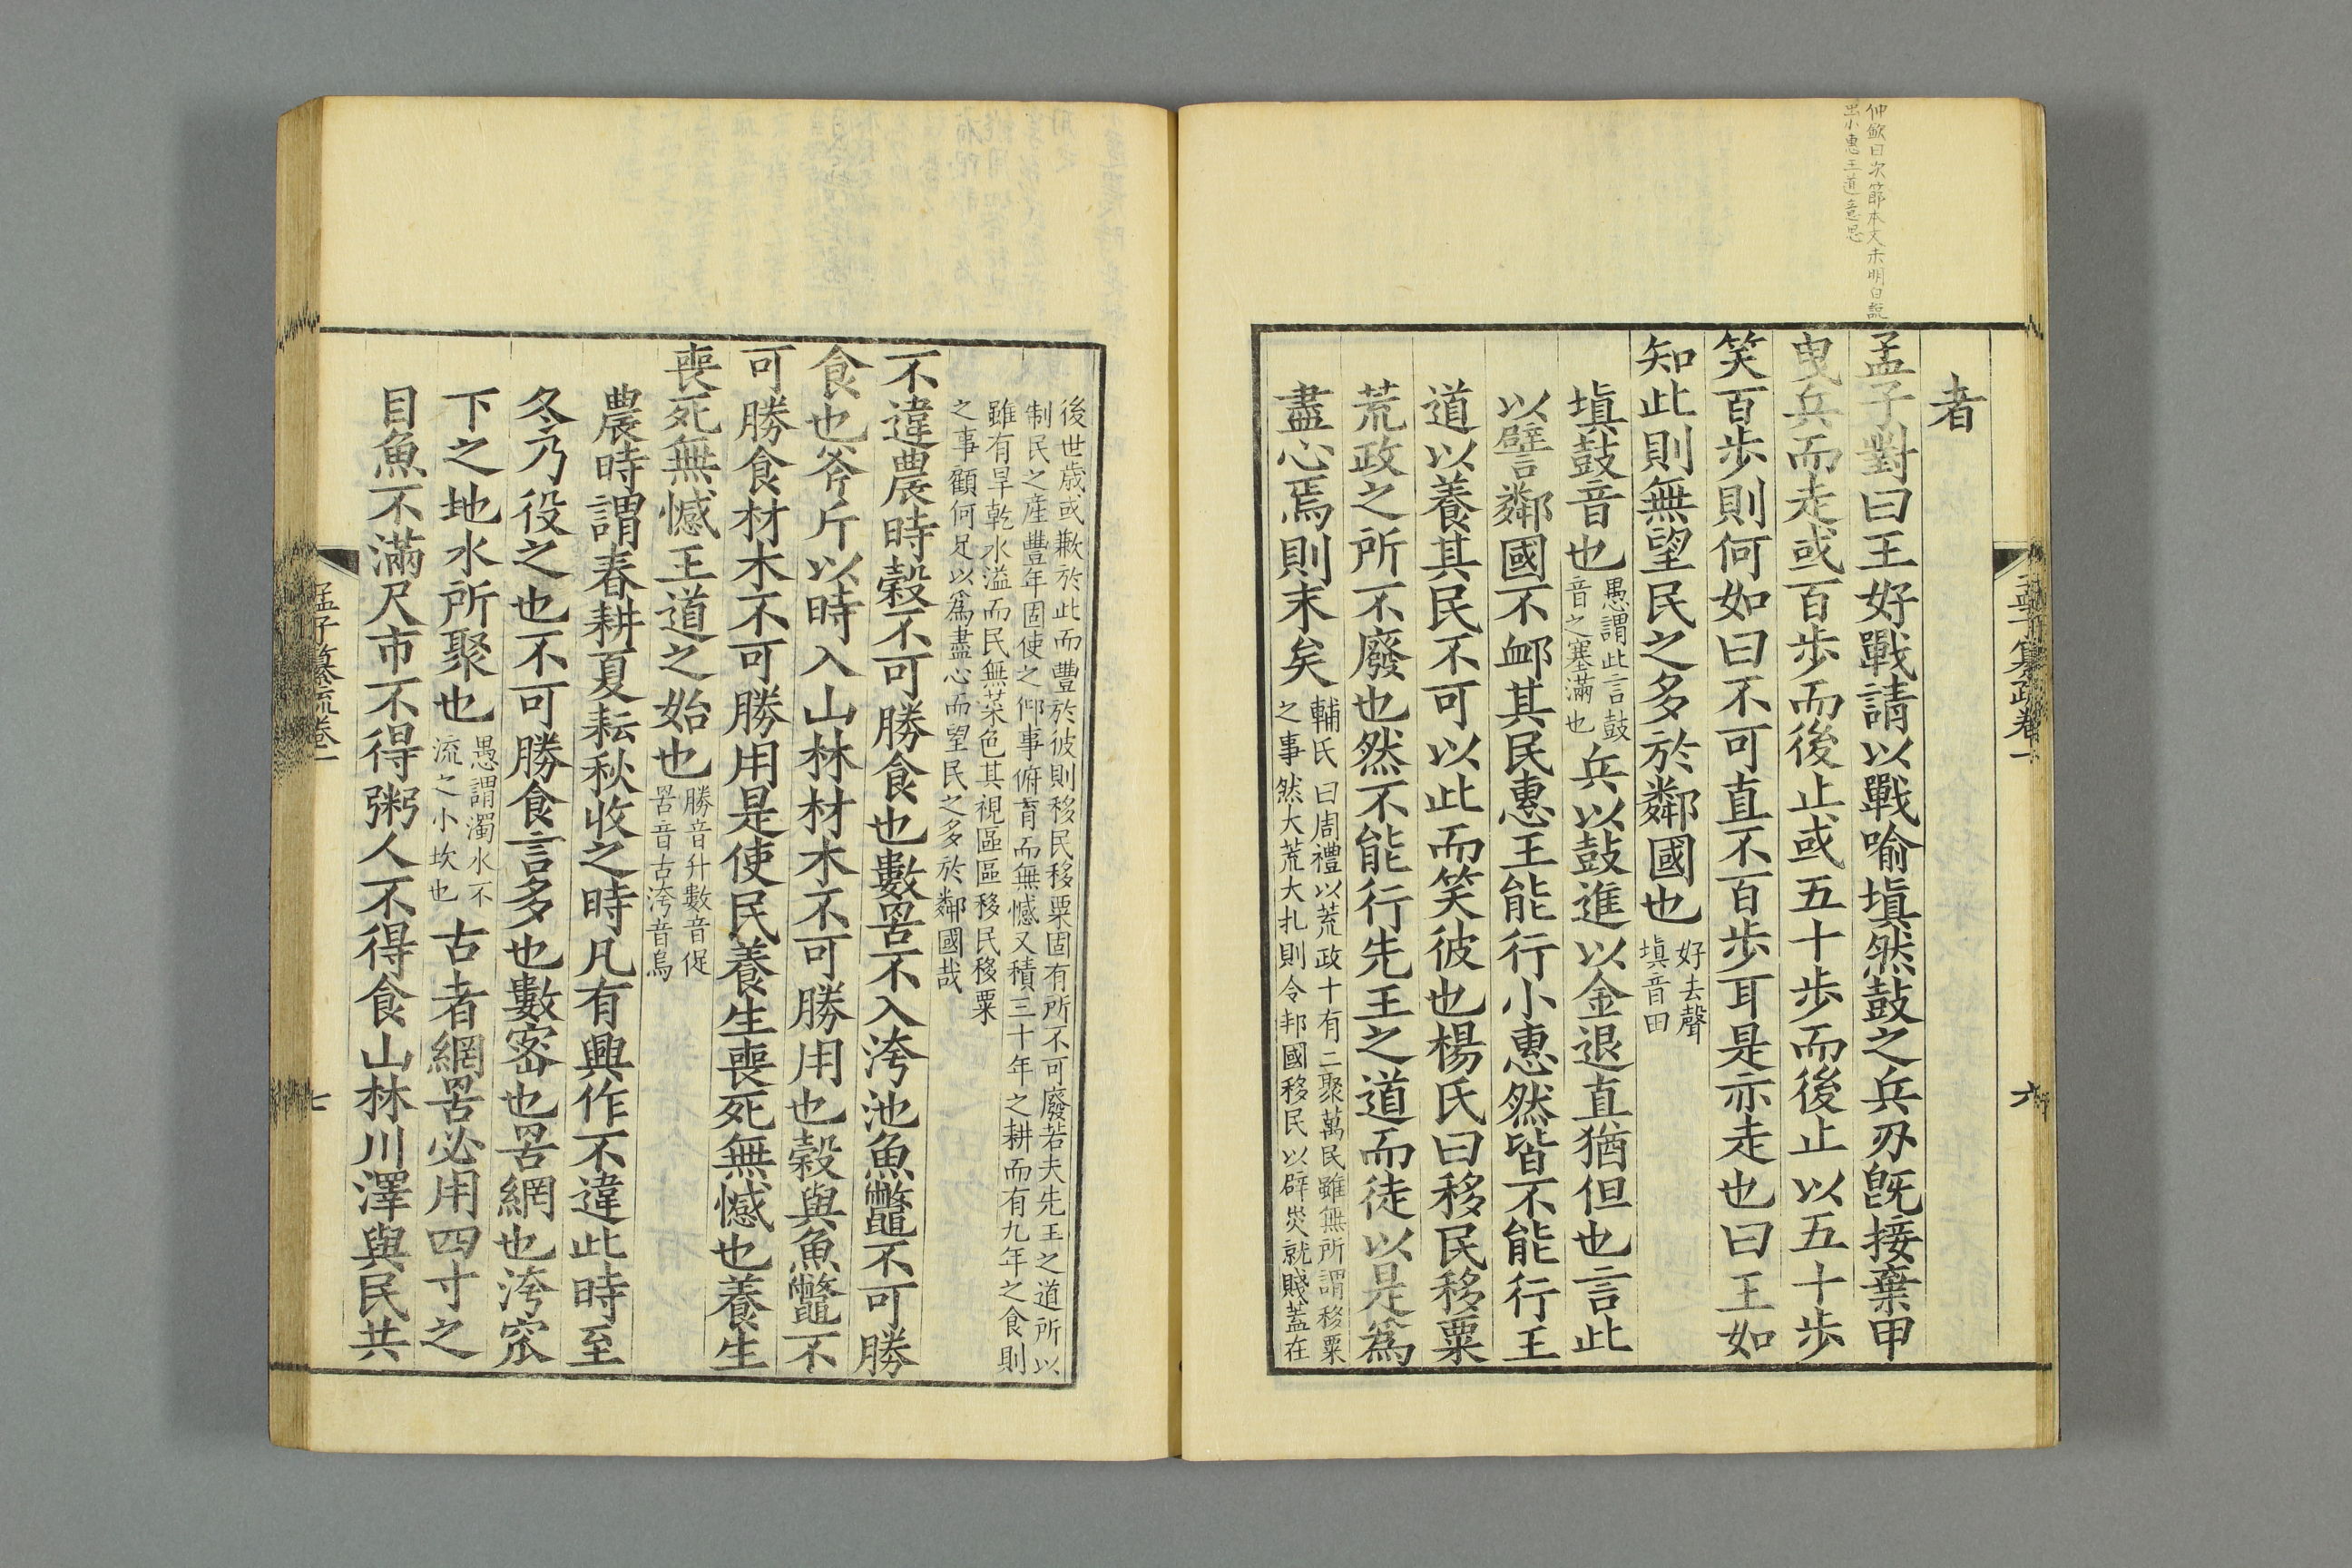 仲歛曰次節本文未明白
出小惠王道意思
者
孟子對曰王好戰請以戰喻塡然鼓之兵刃旣接棄甲
曳兵而走或百步而後止或五十步而後止以五十步
笑百步則何如曰不可直不百步耳是亦走也曰王如
知此則無望民之多於鄰國也
好去聲
塡音田
塡鼓音也
愚謂此言鼓
音之塞滿也
兵以鼓進以金退直猶但也言此
以譬鄰國不䘏其民惠王能行小惠然皆不能行王
道以養其民不可以此而笑彼也楊氏曰移民移粟
荒政之所不廢也然不能行先王之道而徒以是爲
盡心焉則末矣
輔氏曰周禮以荒政十有二聚萬民雖無所謂移粟
之事然大荒大札則令邦國移民以辟災就賤蓋在
孟子纂疏卷一
六
後世歲或歉於此而豐於彼則移民移粟固有所不可廢若夫先王之道所以
制民之產豐年固使之仰事俯育而無憾又積三十年之耕而有九年之食則
雖有旱乾水溢而民無菜色其視區區移民移粟
之事顧何足以爲盡心而望民之多於鄰國哉
不違農時穀不可勝食也數罟不入洿池魚鼈不可勝
食也斧斤以時入山林材木不可勝用也穀與魚鼈不
可勝食材木不可勝用是使民養生喪死無憾也養生
喪死無憾王道之始也
勝音升數音促
罟音古洿音烏
農時謂春耕夏耘秋收之時凡有興作不違此時至
冬乃役之也不可勝食言多也數密也罟網也洿窊
下之地水所聚也
愚謂濁水不
流之小坎也
古者網罟必用四寸之
目魚不滿尺市不得粥人不得食山林川澤與民共
孟子纂疏卷一
七